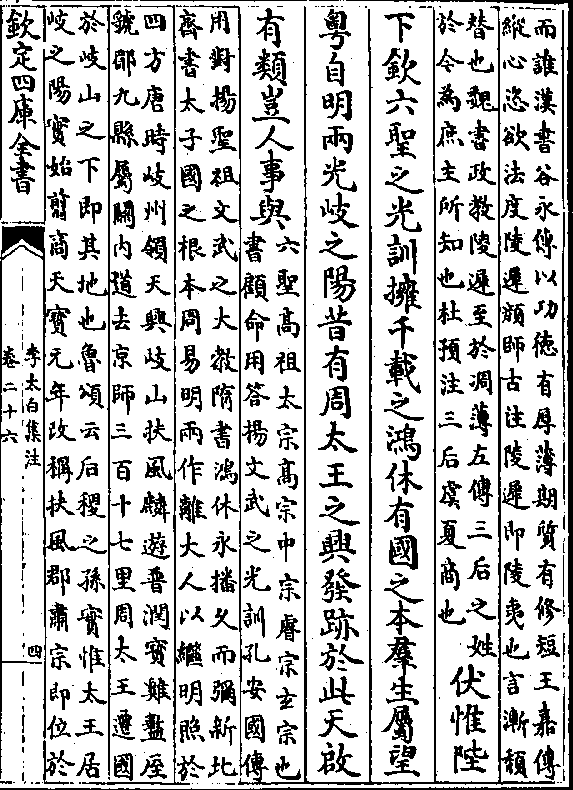 而誰漢書谷永傳以功徳有厚薄期質有修短王嘉傳
縱心恣欲法度陵遲顔師古注陵遲即陵夷也言漸頽
替也魏書政教陵遲至於凋薄左傳三后之姓
於今為庶主所知也杜預注三后虞夏商也
伏惟陛
下欽六聖之光訓擁千載之鴻休有國之本羣生屬望
粤自明兩光岐之陽昔有周太王之興發跡於此天啟
有類豈人事與
六聖髙祖太宗髙宗中宗睿宗玄宗也
書顧命用答揚文武之光訓孔安國傳
用對揚聖祖文武之大教隋書鴻休永播久而彌新北
齊書太子國之根本周易明兩作離大人以繼明照於
四方唐時岐州領天興岐山扶風麟遊普潤寶雞盩厔
虢郿九縣屬關内道去京師三百十七里周太王遷國
於岐山之下即其地也魯頌云后稷之孫實惟太王居
岐之陽實始翦商天寶元年改稱扶風郡肅宗即位於
欽定四庫全書
李太白集注
卷二十六
四